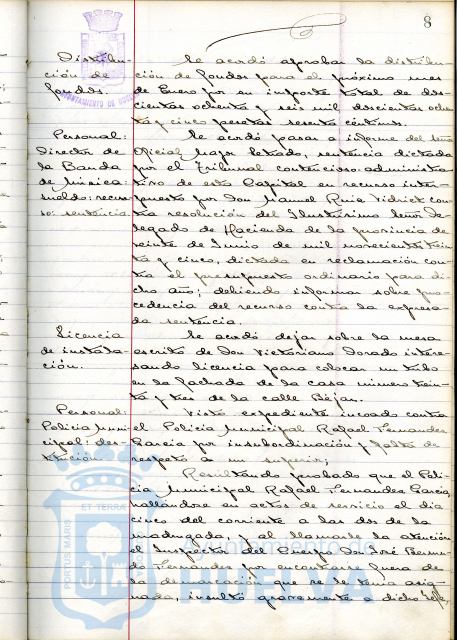 8
Distribu-
ción de
fondos.
Se acordó aprobar la distribu-
ción de fondos para el próximo mes
de Enero por su importe total de dos-
cientas ochenta y seis mil doscientas ochen-
ta y cinco pesetas sesenta céntimos.
Personal:
Director de
la Banda
de Música:
sueldo: recur-
so: sentencia
Se acordó pasar a informe del señor
Oficial Mayor letrado, sentencia dictada
por el Tribunal contencioso-administra-
tivo de esta Capital en recurso inter-
puesto por Don Manuel Ruiz Vidriet con-
tra resolución del Ilustrísimo Señor De-
legado de Hacienda de la provincia de
veinte de Junio de mil novecientos trein-
ta y cinco, dictada en reclamación con-
tra el presupuesto ordinario para di-
cho año; debiendo informar sobre pro-
cedencia del recurso contra la expresa-
da sentencia.
Licencia
de instala-
ción.
Se acordó dejar sobre la mesa
escrito de Don Victoriano Dorado intere-
sando licencia para colocar un tubo
en la fachada de la casa número trein-
ta y tres de la calle Béjar.
Personal:
Policía Muni-
cipal: des-
titución
Visto expediente incoado contra
el Policía Municipal Rafael Fernandez
García por insubordinación y falta de
respeto a un superior;
Resultando probado que el Poli-
cía Municipal Rafael Fernandez García,
hallándose en actos de servicio el día
cinco del corriente a las dos de la
madrugada y al llamarle la atención
el Inspector del Cuerpo Don José Bermu-
do Fernandez por encontrarse fuera de
la demarcación que se le tenía asig-
nada, insultó gravemente a dicho Jefe,
PORTUS MARIS
ET TERRAE
Ayuntamiento de
HUELVA